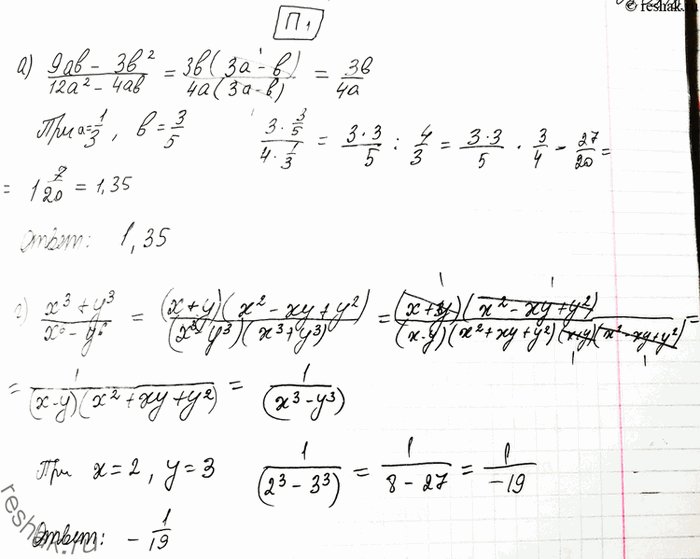 © reshak.ru
П1
а) (9ab - 3b²)/(12a² - 4ab) = 3b(3a - b)/4a(3a - b) = 3b/4a
При a = 1/3, b = 3/5   (3 · 3/5)/(4 · 1/3) = (3·3)/5 : 4/3 = (3·3)/5 · 3/4 - 27/20 =
= 1 7/20 = 1,35
Ответ: 1,35
г) (x³ + y³)/(x⁶ - y⁶) = (x+y)(x² - xy + y²)/(x³ y³)(x³ + y³) = (x+y)(x² - xy + y²)/(x-y)(x² + xy + y²)(x+y)(x² - xy + y²) =
= 1/(x-y)(x² + xy + y²) = 1/(x³ - y³)
При x = 2, y = 3   1/(2³ - 3³) = 1/(8 - 27) = 1/-19
Ответ: - 1/19
reshak.ru